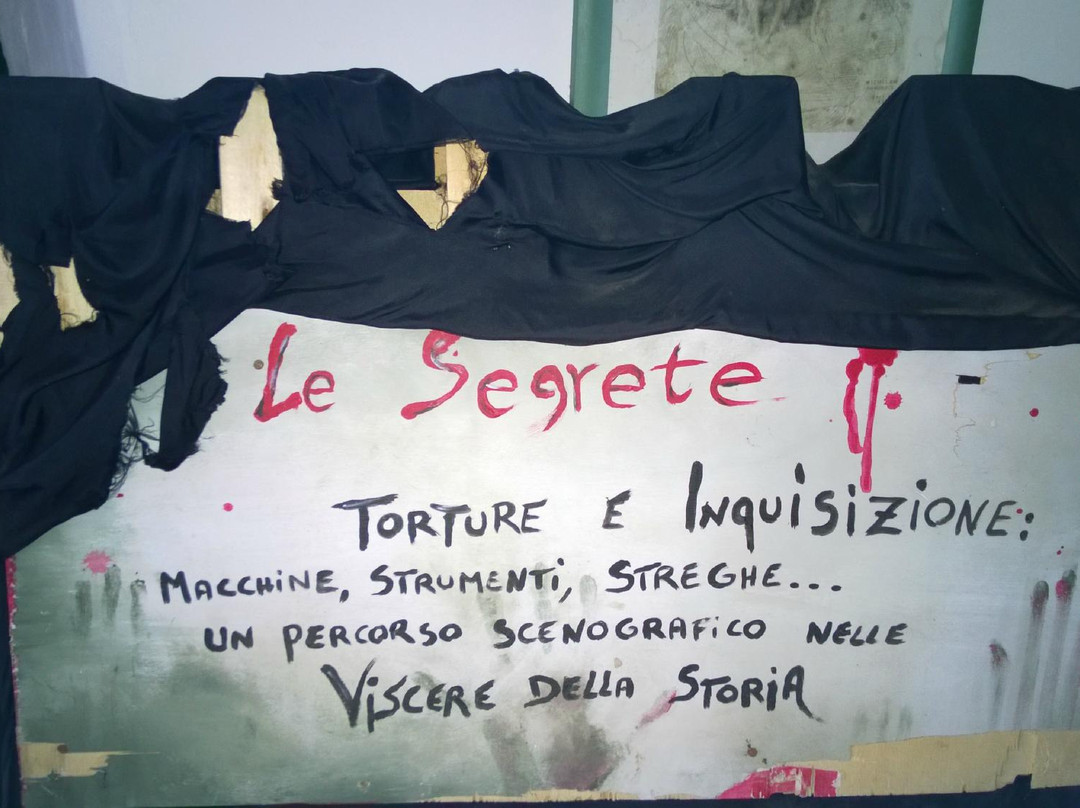 Le Segrete
TORTURE E INQUISIZIONE:
MACCHINE, STRUMENTI, STREGHE...
UN PERCORSO SCENOGRAFICO NELLE
VISCERE DELLA STORIA